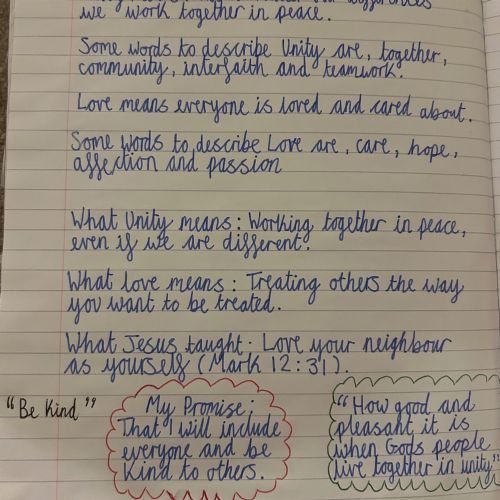 we work together in peace.
Some words to describe Unity are, together,
community, interfaith and teamwork.
Love means everyone is loved and cared about.
Some words to describe Love are, care, hope,
affection and passion
What Unity means: Working together in peace,
even if we are different.
What love means: Treating others the way
you want to be treated.
What Jesus taught: Love your neighbour
as yourself (Mark 12:31).
"Be Kind"
My Promise:
That I will include
everyone and be
Kind to others.
"How good and
pleasant it is
when Gods people
live together in unity"